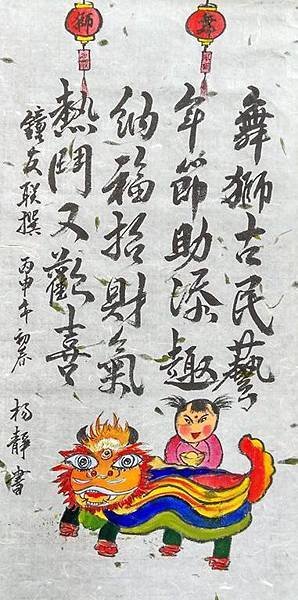 獅
舞
舞獅古民藝
年節助添趣
納福招財氣
熱鬧又歡喜
鐘友联撰
丙申年初春
杨靜書